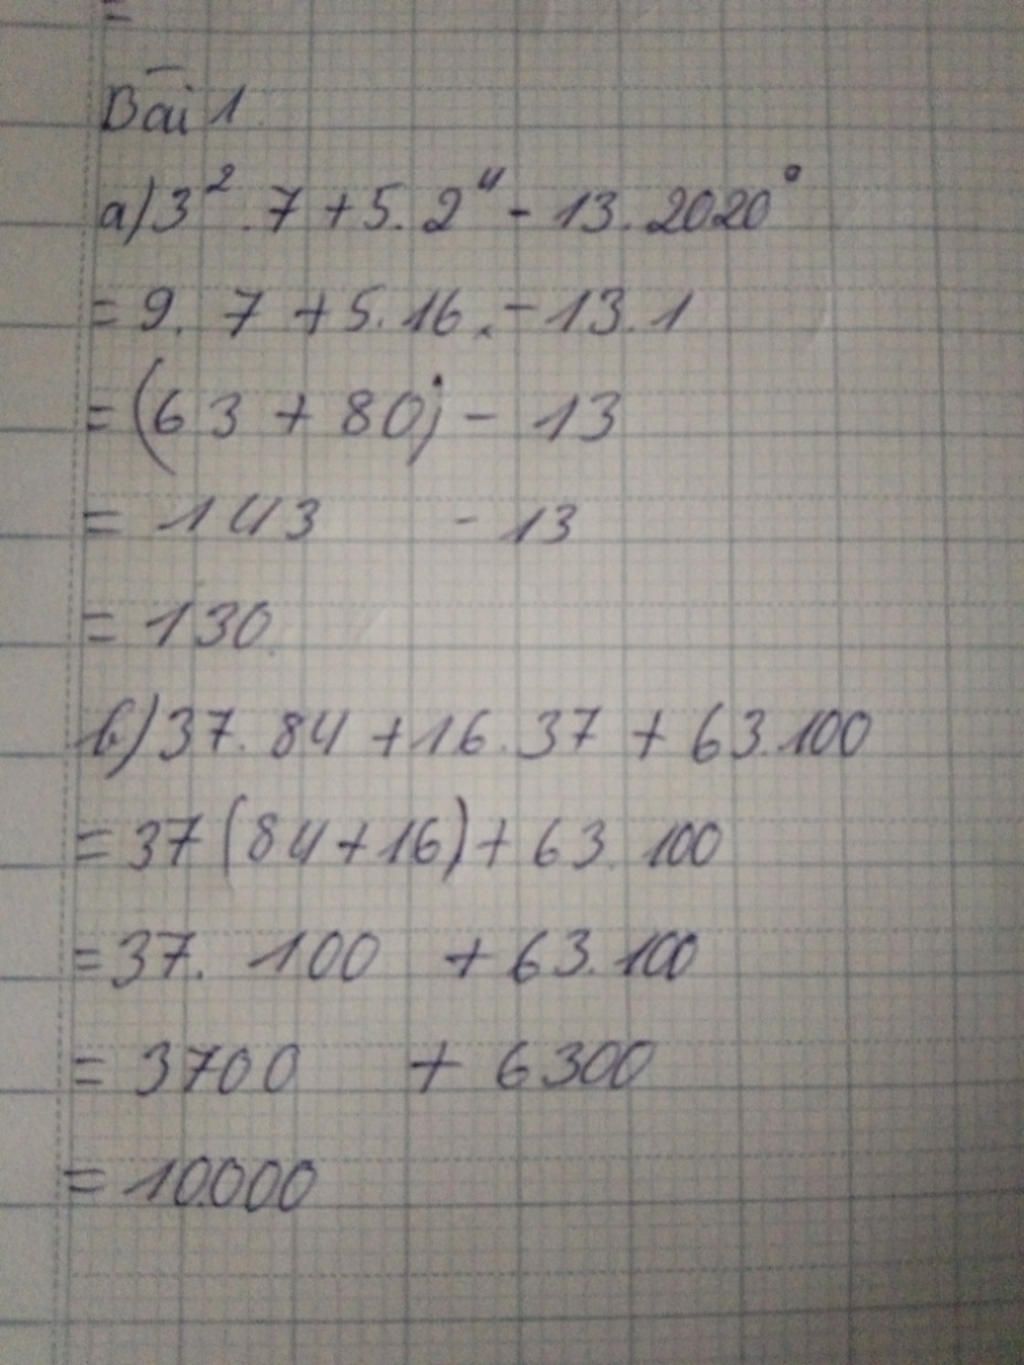 Bài 1
a) 3² . 7 + 5 . 2⁴ - 13 . 2020⁰
= 9 . 7 + 5 . 16 . - 13 . 1
= (63 + 80) - 13
= 143 - 13
= 130
b) 37 . 84 + 16 . 37 + 63 . 100
= 37 (84 + 16) + 63 . 100
= 37 . 100 + 63 . 100
= 3700 + 6300
= 10.000